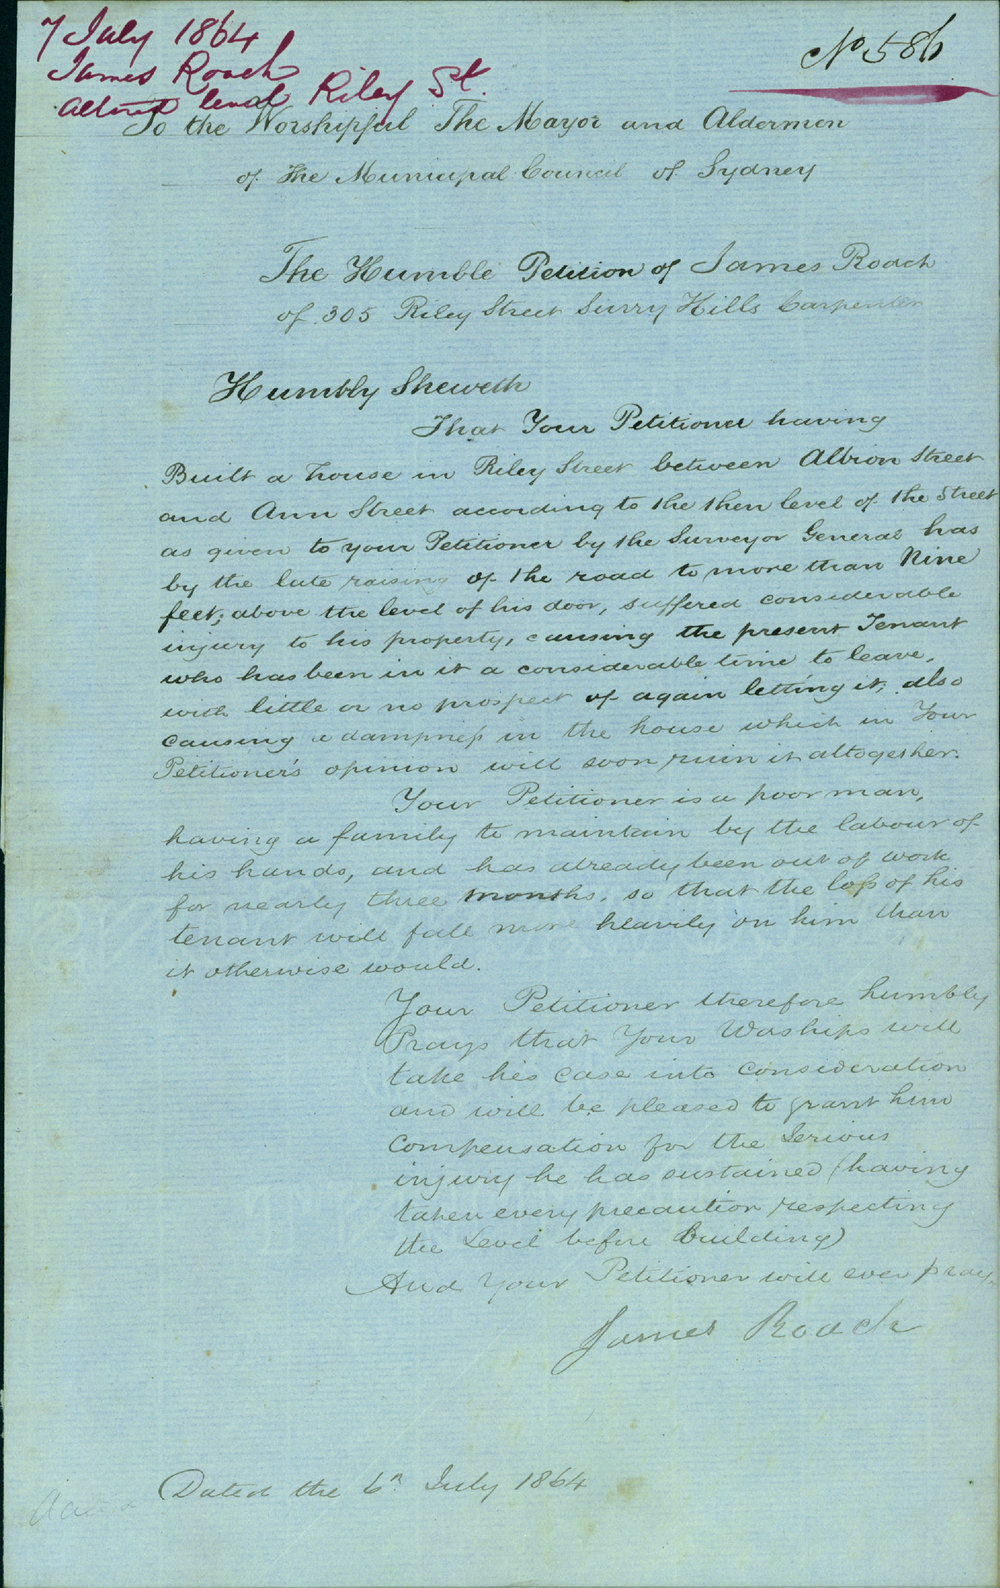 7 July 1864
James Roach
altered level Riley St.
No 586
To the Worshipful The Mayor and Aldermen
of the Municipal Council of Sydney
The Humble Petition of James Roach
of 305 Riley Street Surry Hills Carpenter
Humbly Sheweth
That Your Petitioner having
Built a house in Riley Street between Albion Street
and Ann Street according to the then level of the Street
as given to your Petitioner by the Surveyor General has
by the late raising of the road to more than Nine
feet, above the level of his door, suffered considerable
injury to his property, causing the present Tenant
who has been in it a considerable time to leave,
with little or no prospect of again letting it, also
causing a dampness in the house which in Your
Petitioner's opinion will soon ruin it altogether.
Your Petitioner is a poor man,
having a family to maintain by the labour of
his hands, and has already been out of work
for nearly three months, so that the loss of his
tenant will fall more heavily on him than
it otherwise would.
Your Petitioner therefore humbly
Prays that Your Worships will
take his case into consideration
and will be pleased to grant him
compensation for the Serious
injury he has sustained (having
taken every precaution respecting
the Level before Building)
And Your Petitioner will ever pray.
James Roach
Dated the 6th July 1864